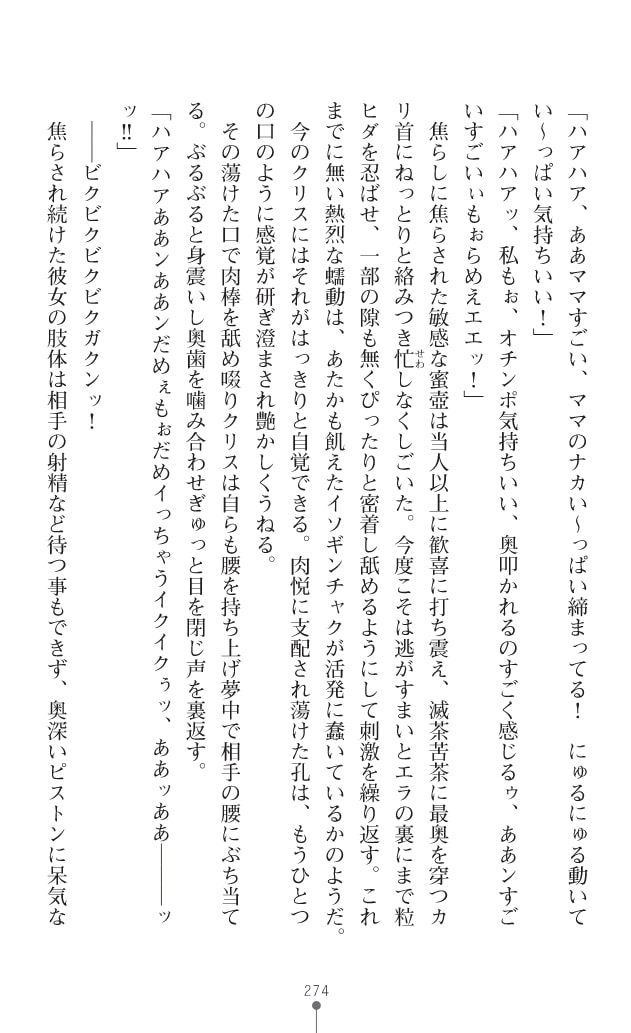 「ハアハア、ああママすごい、ママのナカい～っぱい締まってる！　にゅるにゅる動いて
い～っぱい気持ちいい！」
「ハアハアッ、私もぉ、オチンポ気持ちいい、奥叩かれるのすごく感じるゥ、ああンすご
いすごいぃもぉらめえエエッ！」
　焦らしに焦らされた敏感な蜜壺は当人以上に歓喜に打ち震え、滅茶苦茶に最奥を穿つカ
リ首にねっとりと絡みつき忙しなくしごいた。今度こそは逃がすまいとエラの裏にまで粒
せわ
ヒダを忍ばせ、一部の隙も無くぴったりと密着し舐めるようにして刺激を繰り返す。これ
までに無い熱烈な蠕動は、あたかも飢えたイソギンチャクが活発に蠢いているかのようだ。
　今のクリスにはそれがはっきりと自覚できる。肉悦に支配され蕩けた孔は、もうひとつ
の口のように感覚が研ぎ澄まされ艶かしくうねる。
　その蕩けた口で肉棒を舐め啜りクリスは自らも腰を持ち上げ夢中で相手の腰にぶち当て
る。ぶるぶると身震いし奥歯を噛み合わせぎゅっと目を閉じ声を裏返す。
「ハアハアああンああンだめぇもぉだめイっちゃうイクイクぅッ、ああッああ――ッ
ッ!!」
　――ビクビクビクビクガクンッ！
　焦らされ続けた彼女の肢体は相手の射精など待つ事もできず、奥深いピストンに呆気な
274